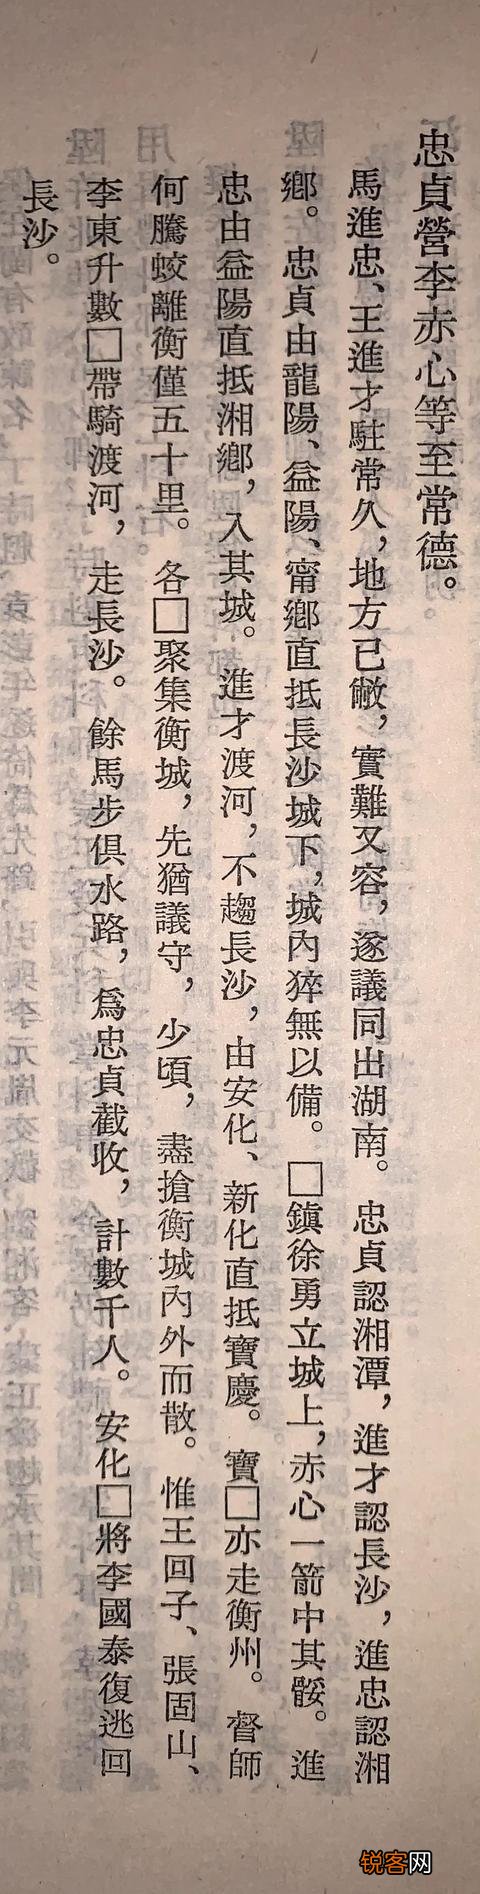 忠貞營李赤心等至常德。
馬進忠、王進才駐常久，地方已敝，實難又容，遂議同出湖南。忠貞認湘潭，進才認長沙，進忠認湘
鄉。忠貞由龍陽、益陽、甯鄉直抵長沙城下，城內猝無以備。□鎮徐勇立城上，赤心一箭中其骽。進
忠由益陽直抵湘鄉，入其城。進才渡河，不趨長沙，由安化、新化直抵寶慶。寶□亦走衡州。督師
何騰蛟離衡僅五十里。各□聚集衡城，先猶議守，少頃，盡搶衡城內外而散。惟王回子、張固山、
李東升數□帶騎渡河，走長沙。餘馬步俱水路，爲忠貞截收，計數千人。安化□將李國泰復逃回
長沙。
锐客网